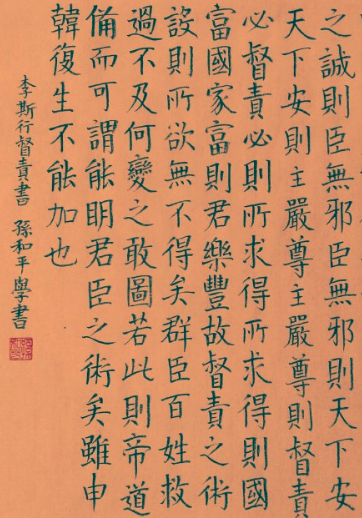 之誠則臣無邪臣無邪則天下安
天下安則主嚴尊主嚴尊則督責
必督責必則所求得所求得則國
富國家富則君樂豐故督責之術
設則所欲無不得矣群臣百姓救
過不及何變之敢圖若此則帝道
備而可謂能明君臣之術矣雖申
韓復生不能加也
李斯行督責書 孫和平學書